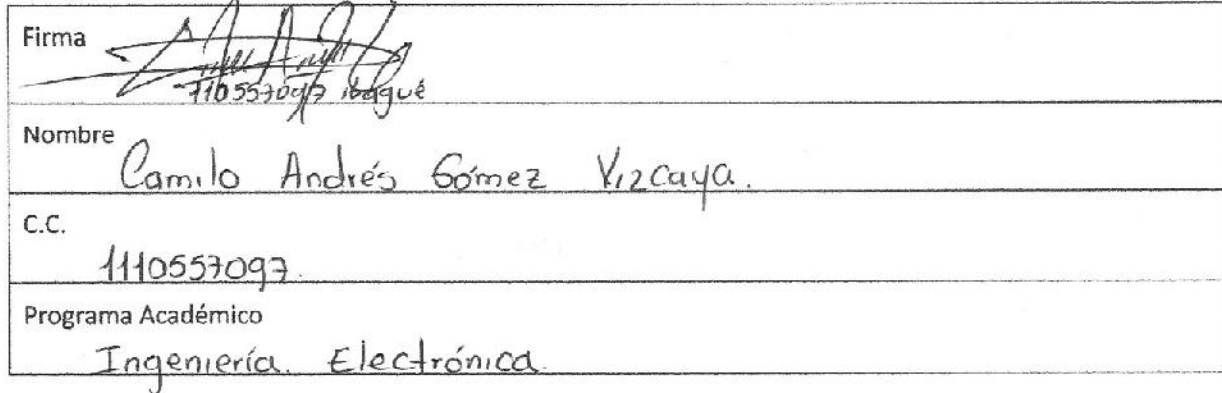 Firma
1110557097 ibagué
Nombre
Camilo Andrés Gómez Vizcaya.
C.C.
1110557097.
Programa Académico
Ingeniería. Electrónica.